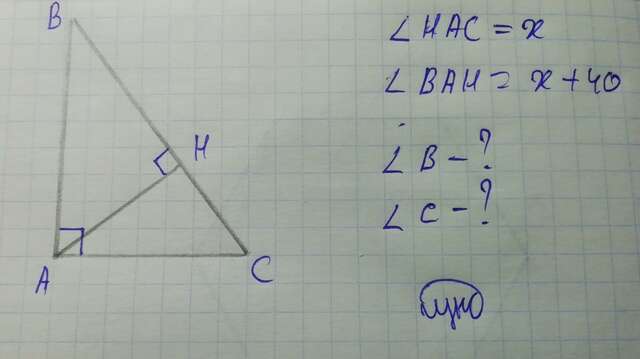 B
H
A
C
∠ HAC = x
∠ BAH = x + 40
∠ B - ?
∠ C - ?